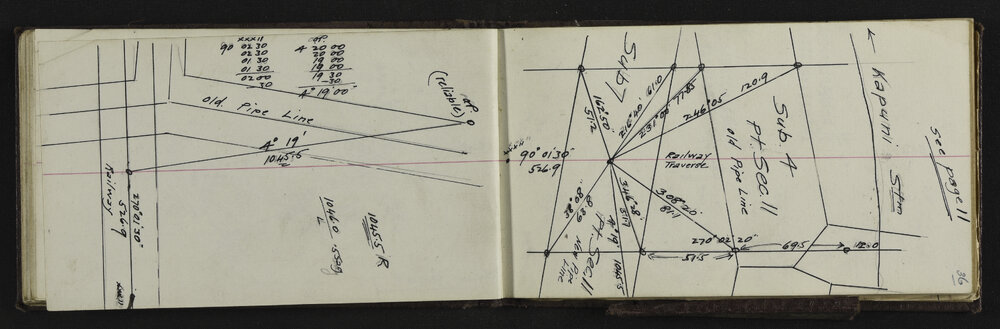 XXXII
90 02 30
02 30
01 30
01 30
02 00
30
OP.
4 20 00
20 00
19 00
19 00
19 30
-30
4° 19' 00"
(reliable)
OP.
Old Pipe Line
4° 19'
1045.5
Railway
270° 01' 30"
526.9
XXXII
1045.5 R
1046.0
L
.5 sag
90° 01' 30"
526.9
Sub 7
162° 50'
51.2
216° 40'
61.0
231° 00'
77.85
246° 05'
120.9
Railway
Traverse
Sub. 4
Pt. Sec. 11
Old Pipe Line
← Kapuni Stm
See page 11
36
308° 20'
346° 28'
4° 19' 1045.5
Pt. Sec. 11
New Pipe
Line
270° 02' 20"
51.5
69.5
12.0